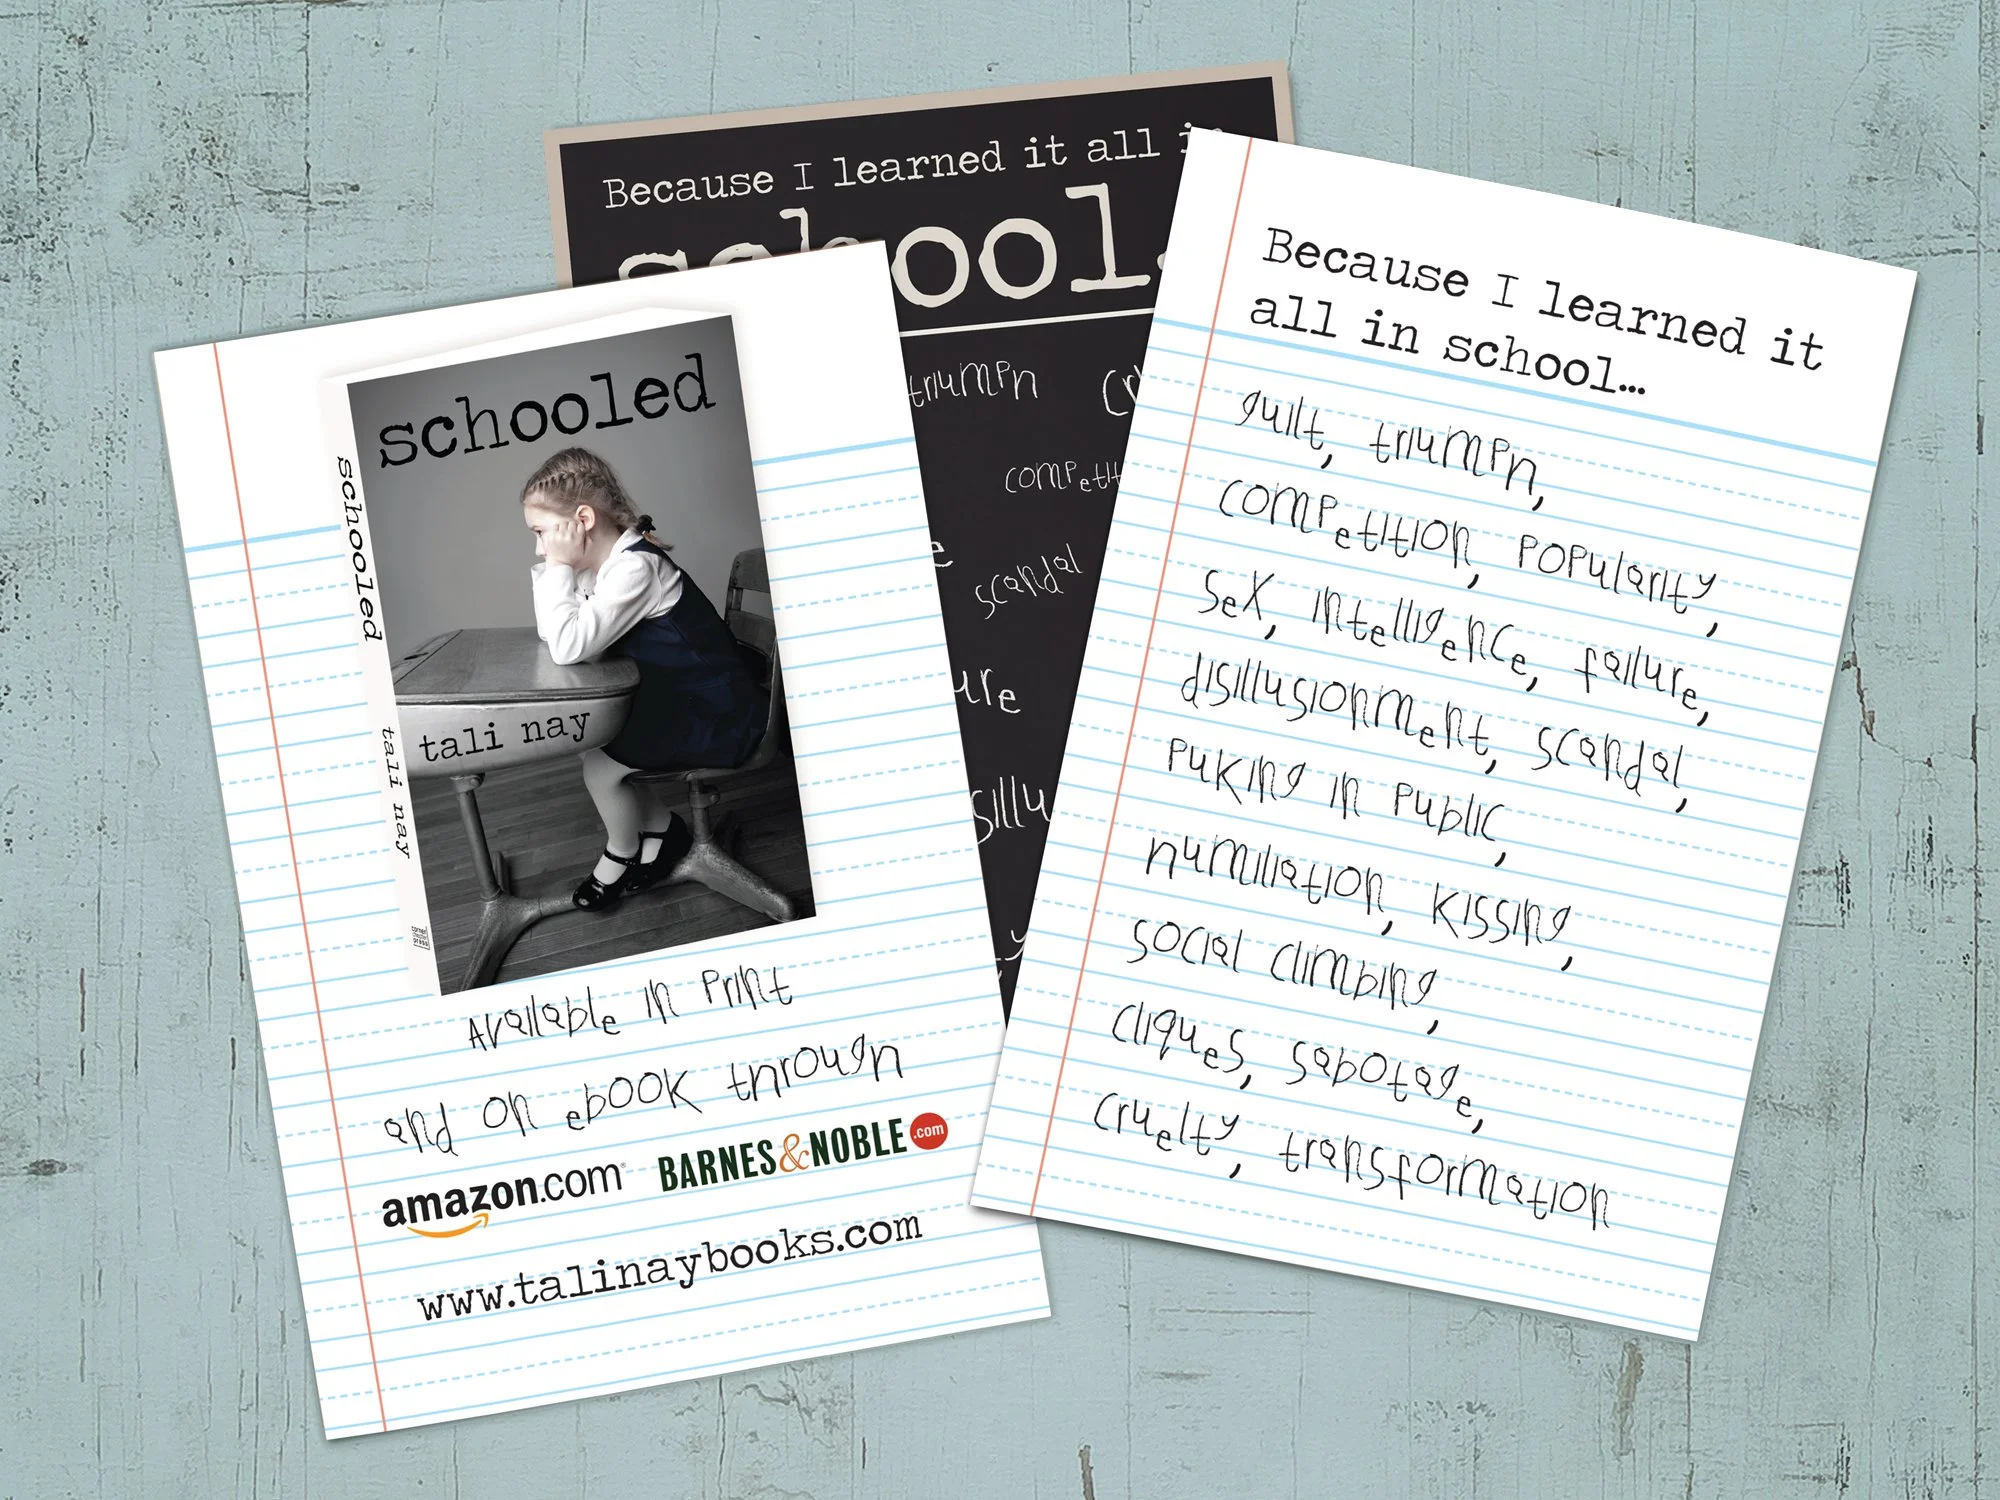 Because I learned it all
school.
triumph
competit
scandal
ure
sillu
schooled
schooled
tali nay
tali nay
Available in print
and on ebook through
amazon.com BARNES&NOBLE.com
www.talinaybooks.com
Because I learned it
all in school...
guilt, triumph,
competition, popularity,
sex, intelligence, failure,
disillusionment, scandal,
puking in public,
humiliation, kissing,
social climbing,
cliques, sabotage,
cruelty, transformation